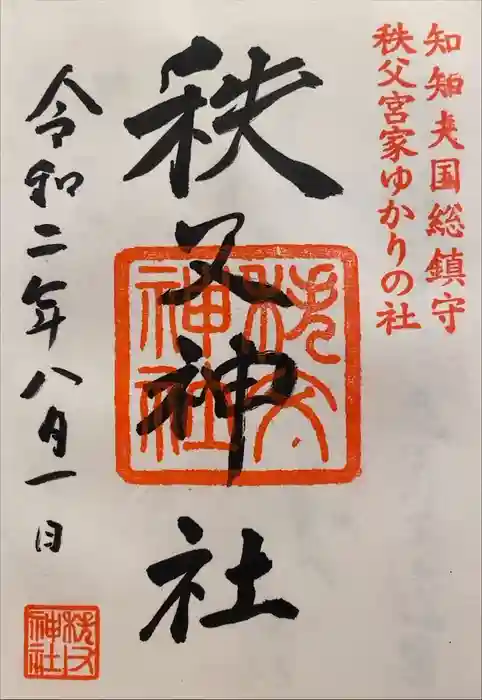 知知夫国総鎮守
秩父宮家ゆかりの社
秩父神社
秩父神社
令和二年八月一日
秩父神社